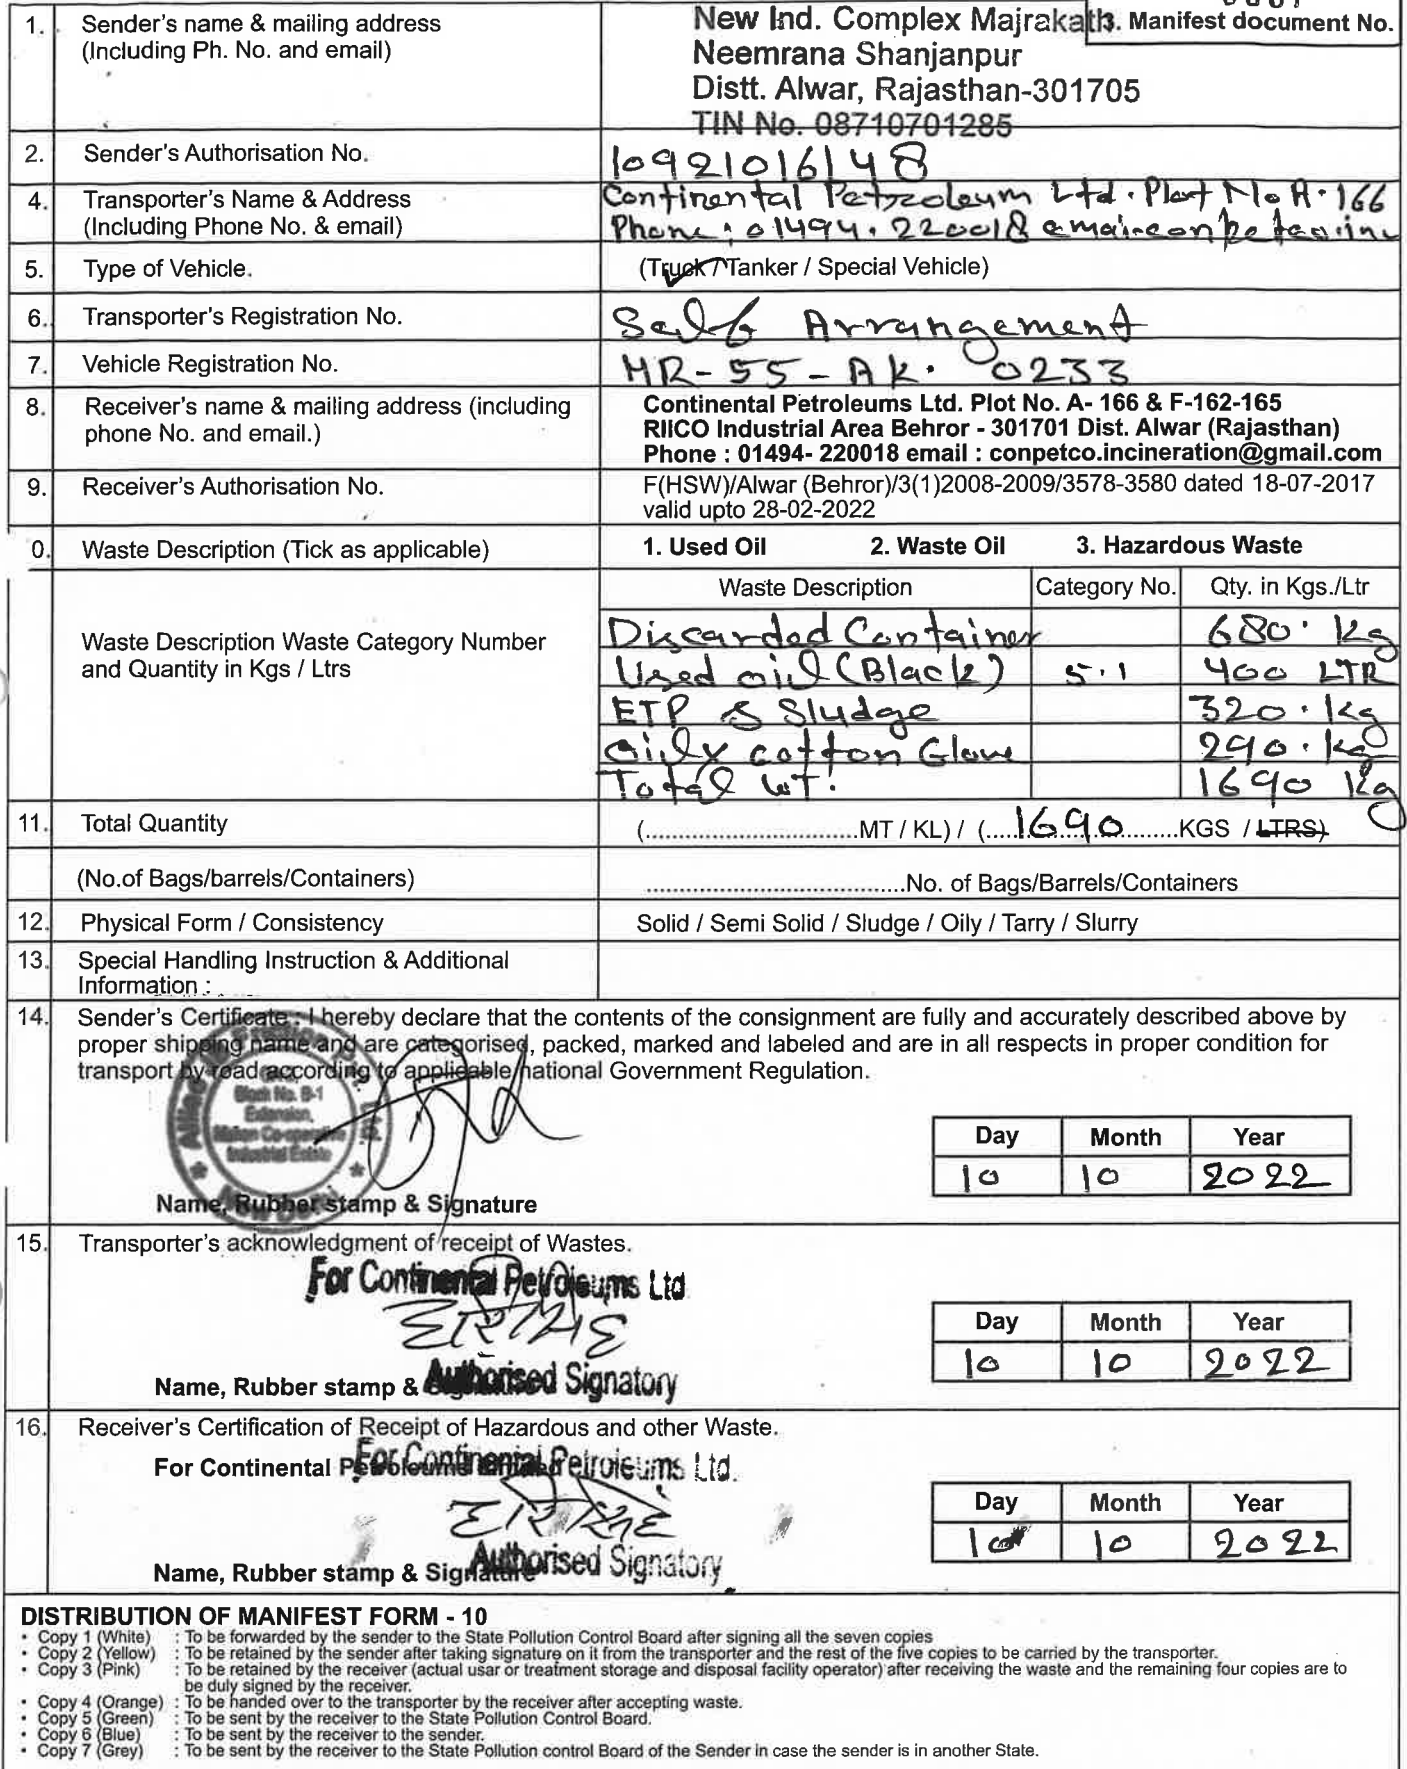 1. Sender's name & mailing address
(Including Ph. No. and email)
New Ind. Complex Majrakath
Neemrana Shanjanpur
Distt. Alwar, Rajasthan-301705
TIN No. 08710701285
3. Manifest document No.
2. Sender's Authorisation No.
10921016148
4. Transporter's Name & Address
(Including Phone No. & email)
Continental Petroleum Ltd. Plot No A-166
Phone: 01494. 220018
5. Type of Vehicle.
(Truck / Tanker / Special Vehicle)
6. Transporter's Registration No.
Self Arrangement
7. Vehicle Registration No.
HR-55-AK. 0233
8. Receiver's name & mailing address (including
phone No. and email.)
Continental Petroleums Ltd. Plot No. A- 166 & F-162-165
RIICO Industrial Area Behror - 301701 Dist. Alwar (Rajasthan)
Phone : 01494- 220018 email : conpetco.incineration@gmail.com
9. Receiver's Authorisation No.
F(HSW)/Alwar (Behror)/3(1)2008-2009/3578-3580 dated 18-07-2017
valid upto 28-02-2022
0. Waste Description (Tick as applicable)
1. Used Oil 2. Waste Oil 3. Hazardous Waste
Waste Description Waste Category Number
and Quantity in Kgs / Ltrs
Waste Description Category No. Qty. in Kgs./Ltr
Discarded Container 680. Kg
Used oil (Black) 5.1 400 LTR
ETP Sludge 320. Kg
Oily cotton Glove 290. Kg
Total WT: 1690 Kg
11. Total Quantity
(..............................MT / KL) / (.....1690.........KGS / LTRS)
(No.of Bags/barrels/Containers)
....................................No. of Bags/Barrels/Containers
12. Physical Form / Consistency
Solid / Semi Solid / Sludge / Oily / Tarry / Slurry
13. Special Handling Instruction & Additional
Information :
14. Sender's Certificate : I hereby declare that the contents of the consignment are fully and accurately described above by
proper shipping name and are categorised, packed, marked and labeled and are in all respects in proper condition for
transport by road according to applicable national Government Regulation.
Block No. B-1
Extension,
Mohan Co-operative
Industrial Estate
New Delhi
Day Month Year
10 10 2022
Name, Rubber stamp & Signature
15. Transporter's acknowledgment of receipt of Wastes.
For Continental Petroleums Ltd
Day Month Year
10 10 2022
Name, Rubber stamp &
Authorised Signatory
16. Receiver's Certification of Receipt of Hazardous and other Waste.
For Continental Petroleums Limited
For Continental Petroleums Ltd.
Day Month Year
10 10 2022
Name, Rubber stamp & Signature
Authorised Signatory
DISTRIBUTION OF MANIFEST FORM - 10
• Copy 1 (White) : To be forwarded by the sender to the State Pollution Control Board after signing all the seven copies
• Copy 2 (Yellow) : To be retained by the sender after taking signature on it from the transporter and the rest of the five copies to be carried by the transporter.
• Copy 3 (Pink) : To be retained by the receiver (actual usar or treatment storage and disposal facility operator) after receiving the waste and the remaining four copies are to
be duly signed by the receiver.
• Copy 4 (Orange) : To be handed over to the transporter by the receiver after accepting waste.
• Copy 5 (Green) : To be sent by the receiver to the State Pollution Control Board.
• Copy 6 (Blue) : To be sent by the receiver to the sender.
• Copy 7 (Grey) : To be sent by the receiver to the State Pollution control Board of the Sender in case the sender is in another State.